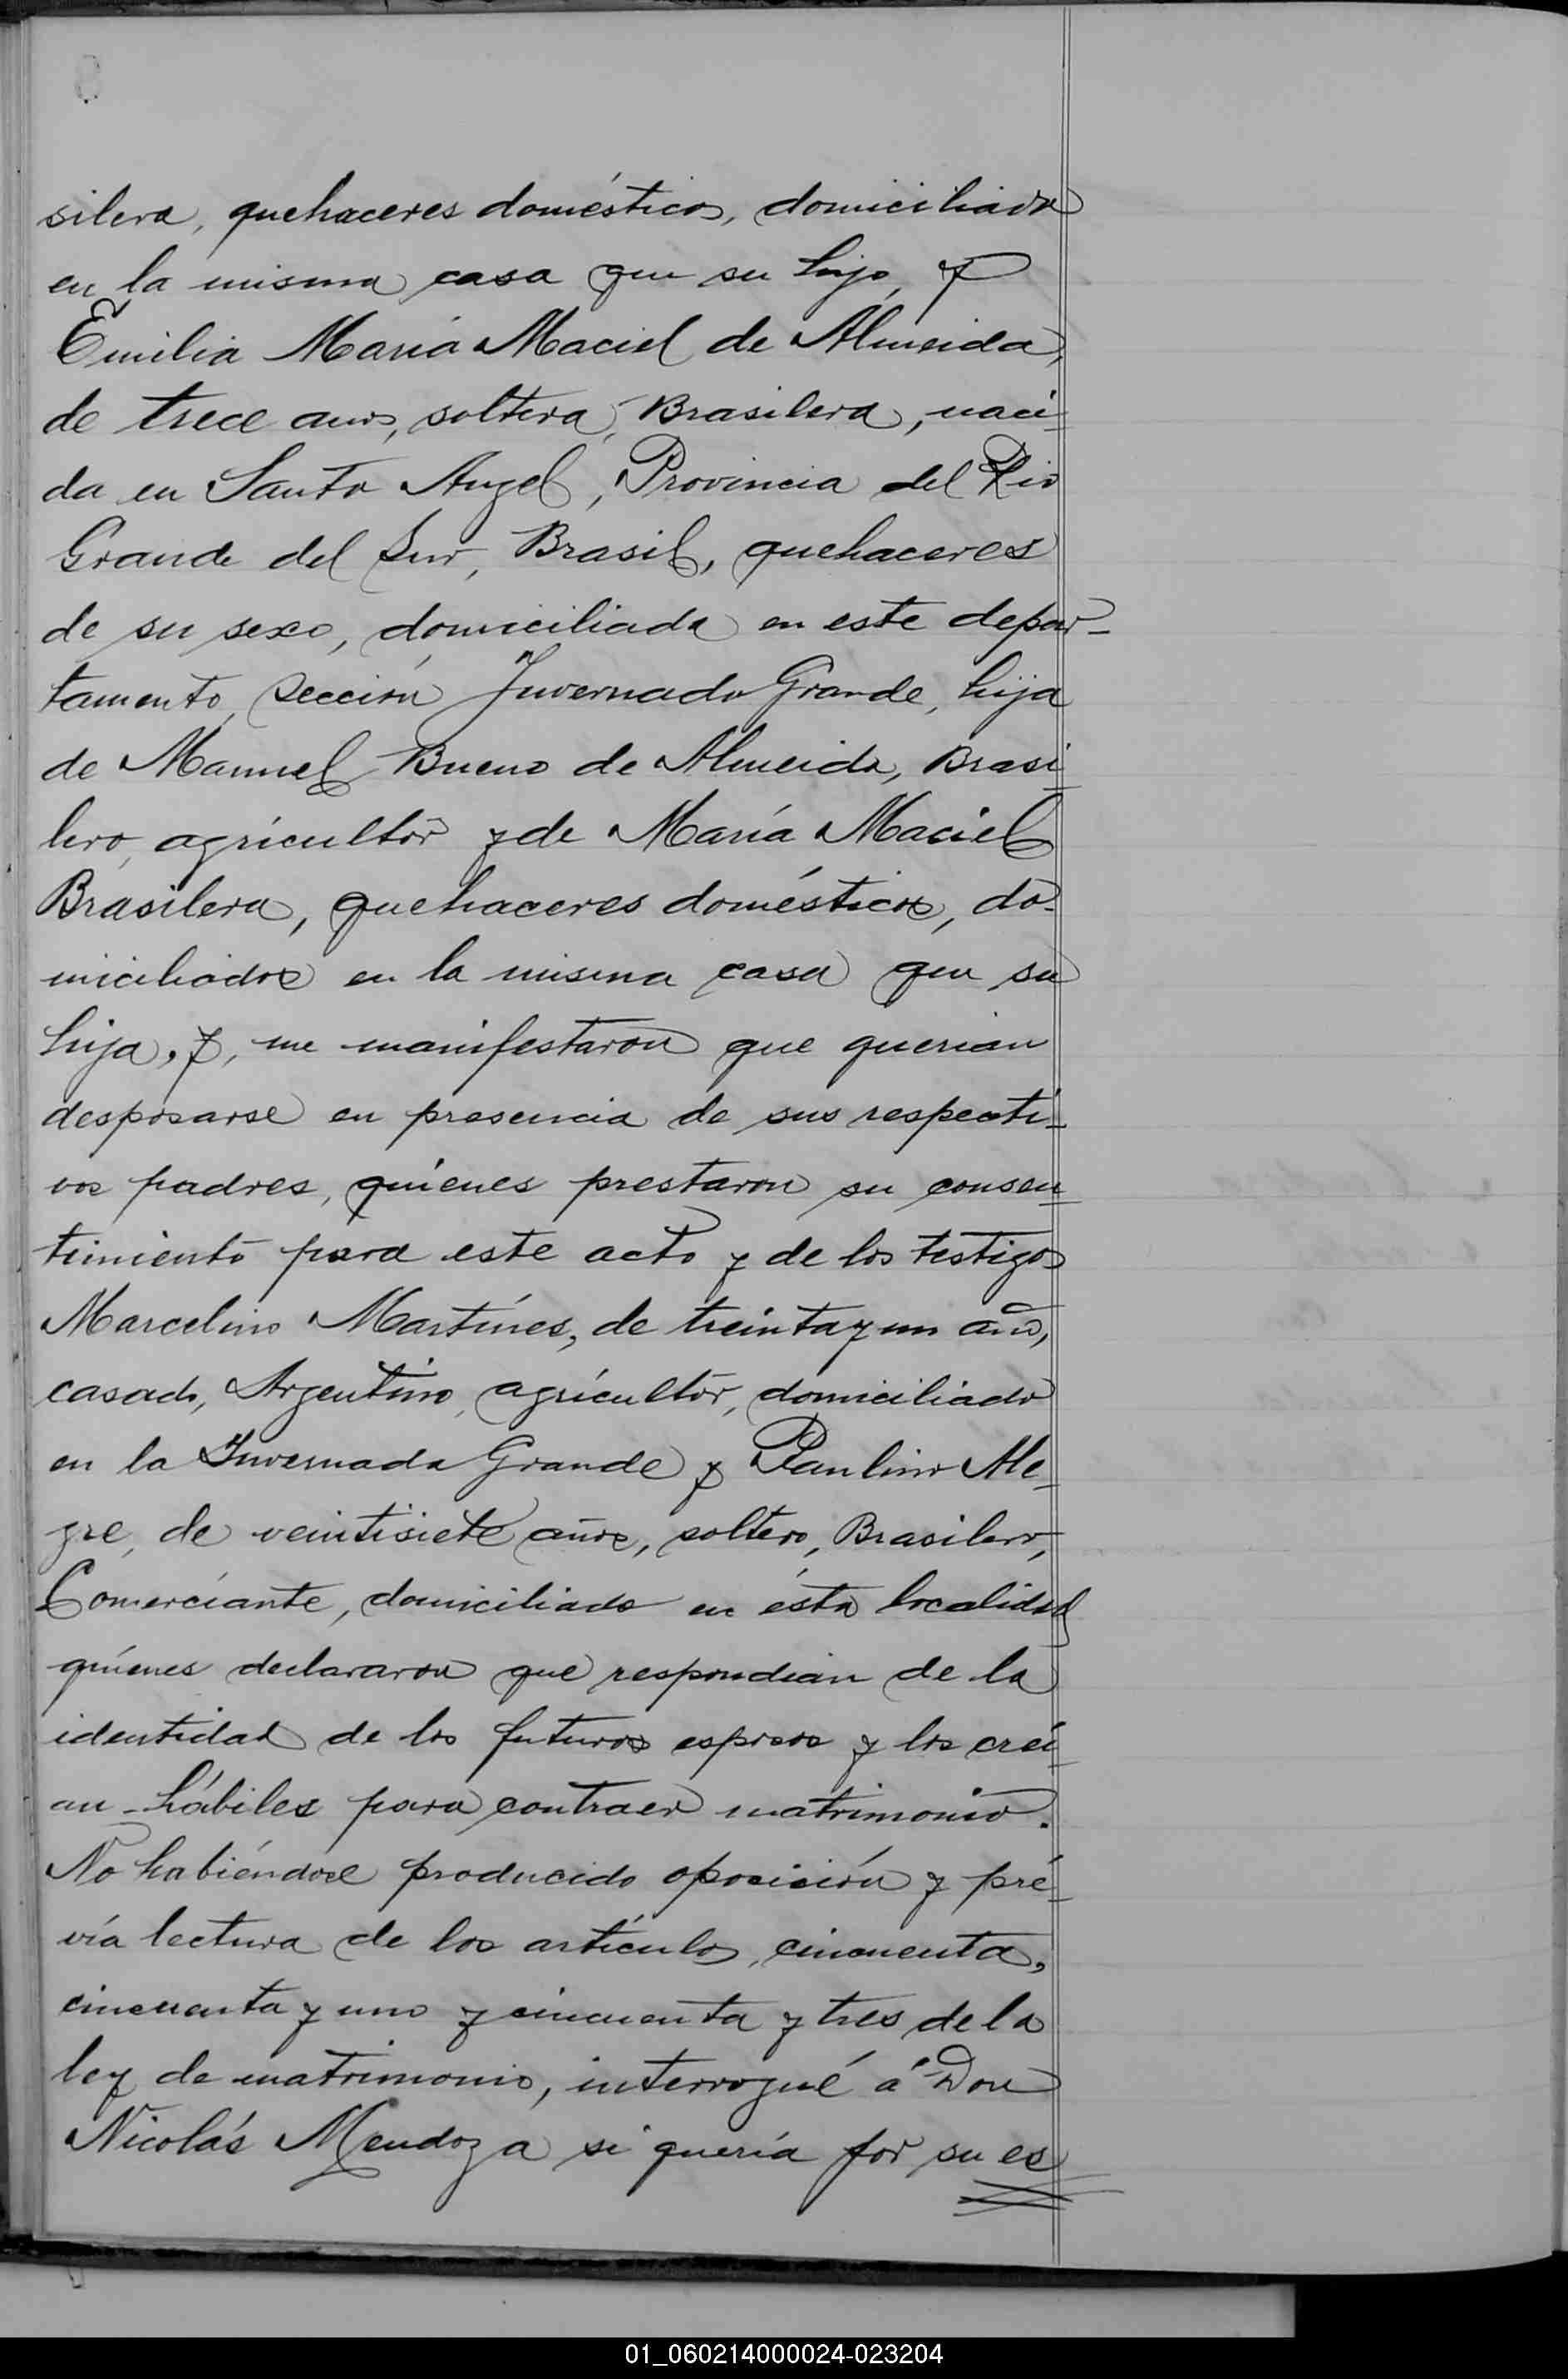 silera, quehaceres domésticos, domiciliada
en la misma casa que su hijo, y
Emilia María Maciel de Almeida,
de trece anos, soltera, Brasilera, naci-
da en Santo Angel, Provincia del Rio
Grande del Sur, Brasil, quehaceres
de su sexo, domiciliada en este depar-
tamento, sección Invernada Grande, hija
de Manuel Bueno de Almeida, Brasi-
lero, agricultor y de María Maciel
Brasilera, quehaceres domésticos, do-
miciliados en la misma casa que su
hija, y, me manifestaron que querian
desposarse en presencia de sus respecti-
vos padres, quienes prestaron su consen-
timiento para este acto y de los testigos
Marcelino Martínes, de treinta y un año,
casado, Argentino, agricultor, domiciliado
en la Invernada Grande y Paulino Ale-
gre, de veintisiete años, soltero, Brasilero,
Comerciante, domiciliado en ésta localidad
quienes declararon que respondian de la
identidad de los futuros esposos y los creí-
an hábiles para contraer matrimonio.
No habiéndose producido oposición y pré-
vía lectura de los artículos, cincuenta,
cincuenta y uno y cincuenta y tres de la
ley de matrimonio, interrogué á Don
Nicolás Mendoza si quería por su es
01_060214000024-023204